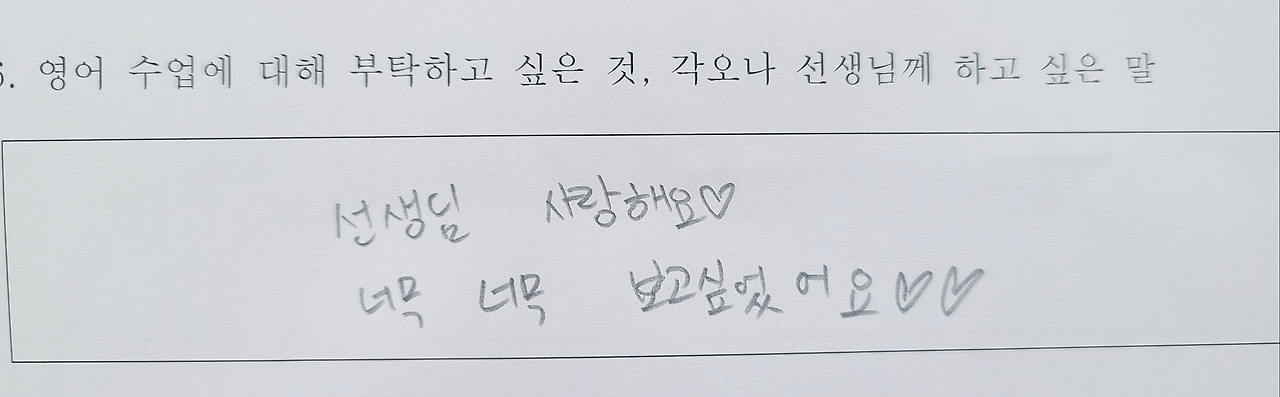 6. 영어 수업에 대해 부탁하고 싶은 것, 각오나 선생님께 하고 싶은 말
선생님 사랑해요♡
너무 너무 보고싶었어요♡♡